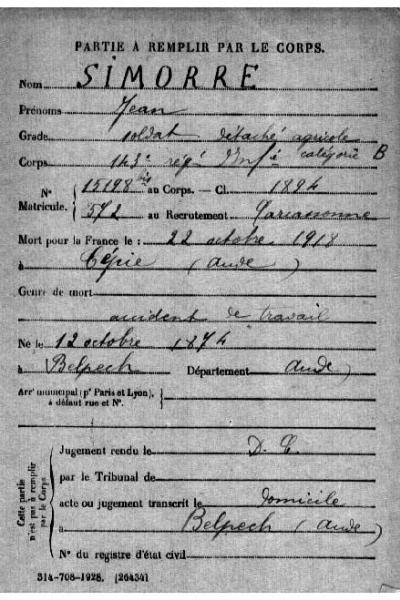 PARTIE À REMPLIR PAR LE CORPS.
Nom SIMORRE
Prénoms Jean
Grade soldat détaché agricole
catégorie B
Corps 143e régt d'Infie
No 15198 bis au Corps. — Cl. 1894
Matricule. 572 au Recrutement Carcassonne
Mort pour la France le : 22 octobre 1918
à Cépie (Aude)
Genre de mort
accident de travail
Né le 12 octobre 1874
à Belpech Département Aude)
Arrt municipal (pr Paris et Lyon),
à défaut rue et No.
Cette partie
n'est pas à remplir
par le Corps
Jugement rendu le D. C.
par le Tribunal de
acte ou jugement transcrit le Domicile
à Belpech (Aude)
No du registre d'état civil
314-708-1928. [26434]